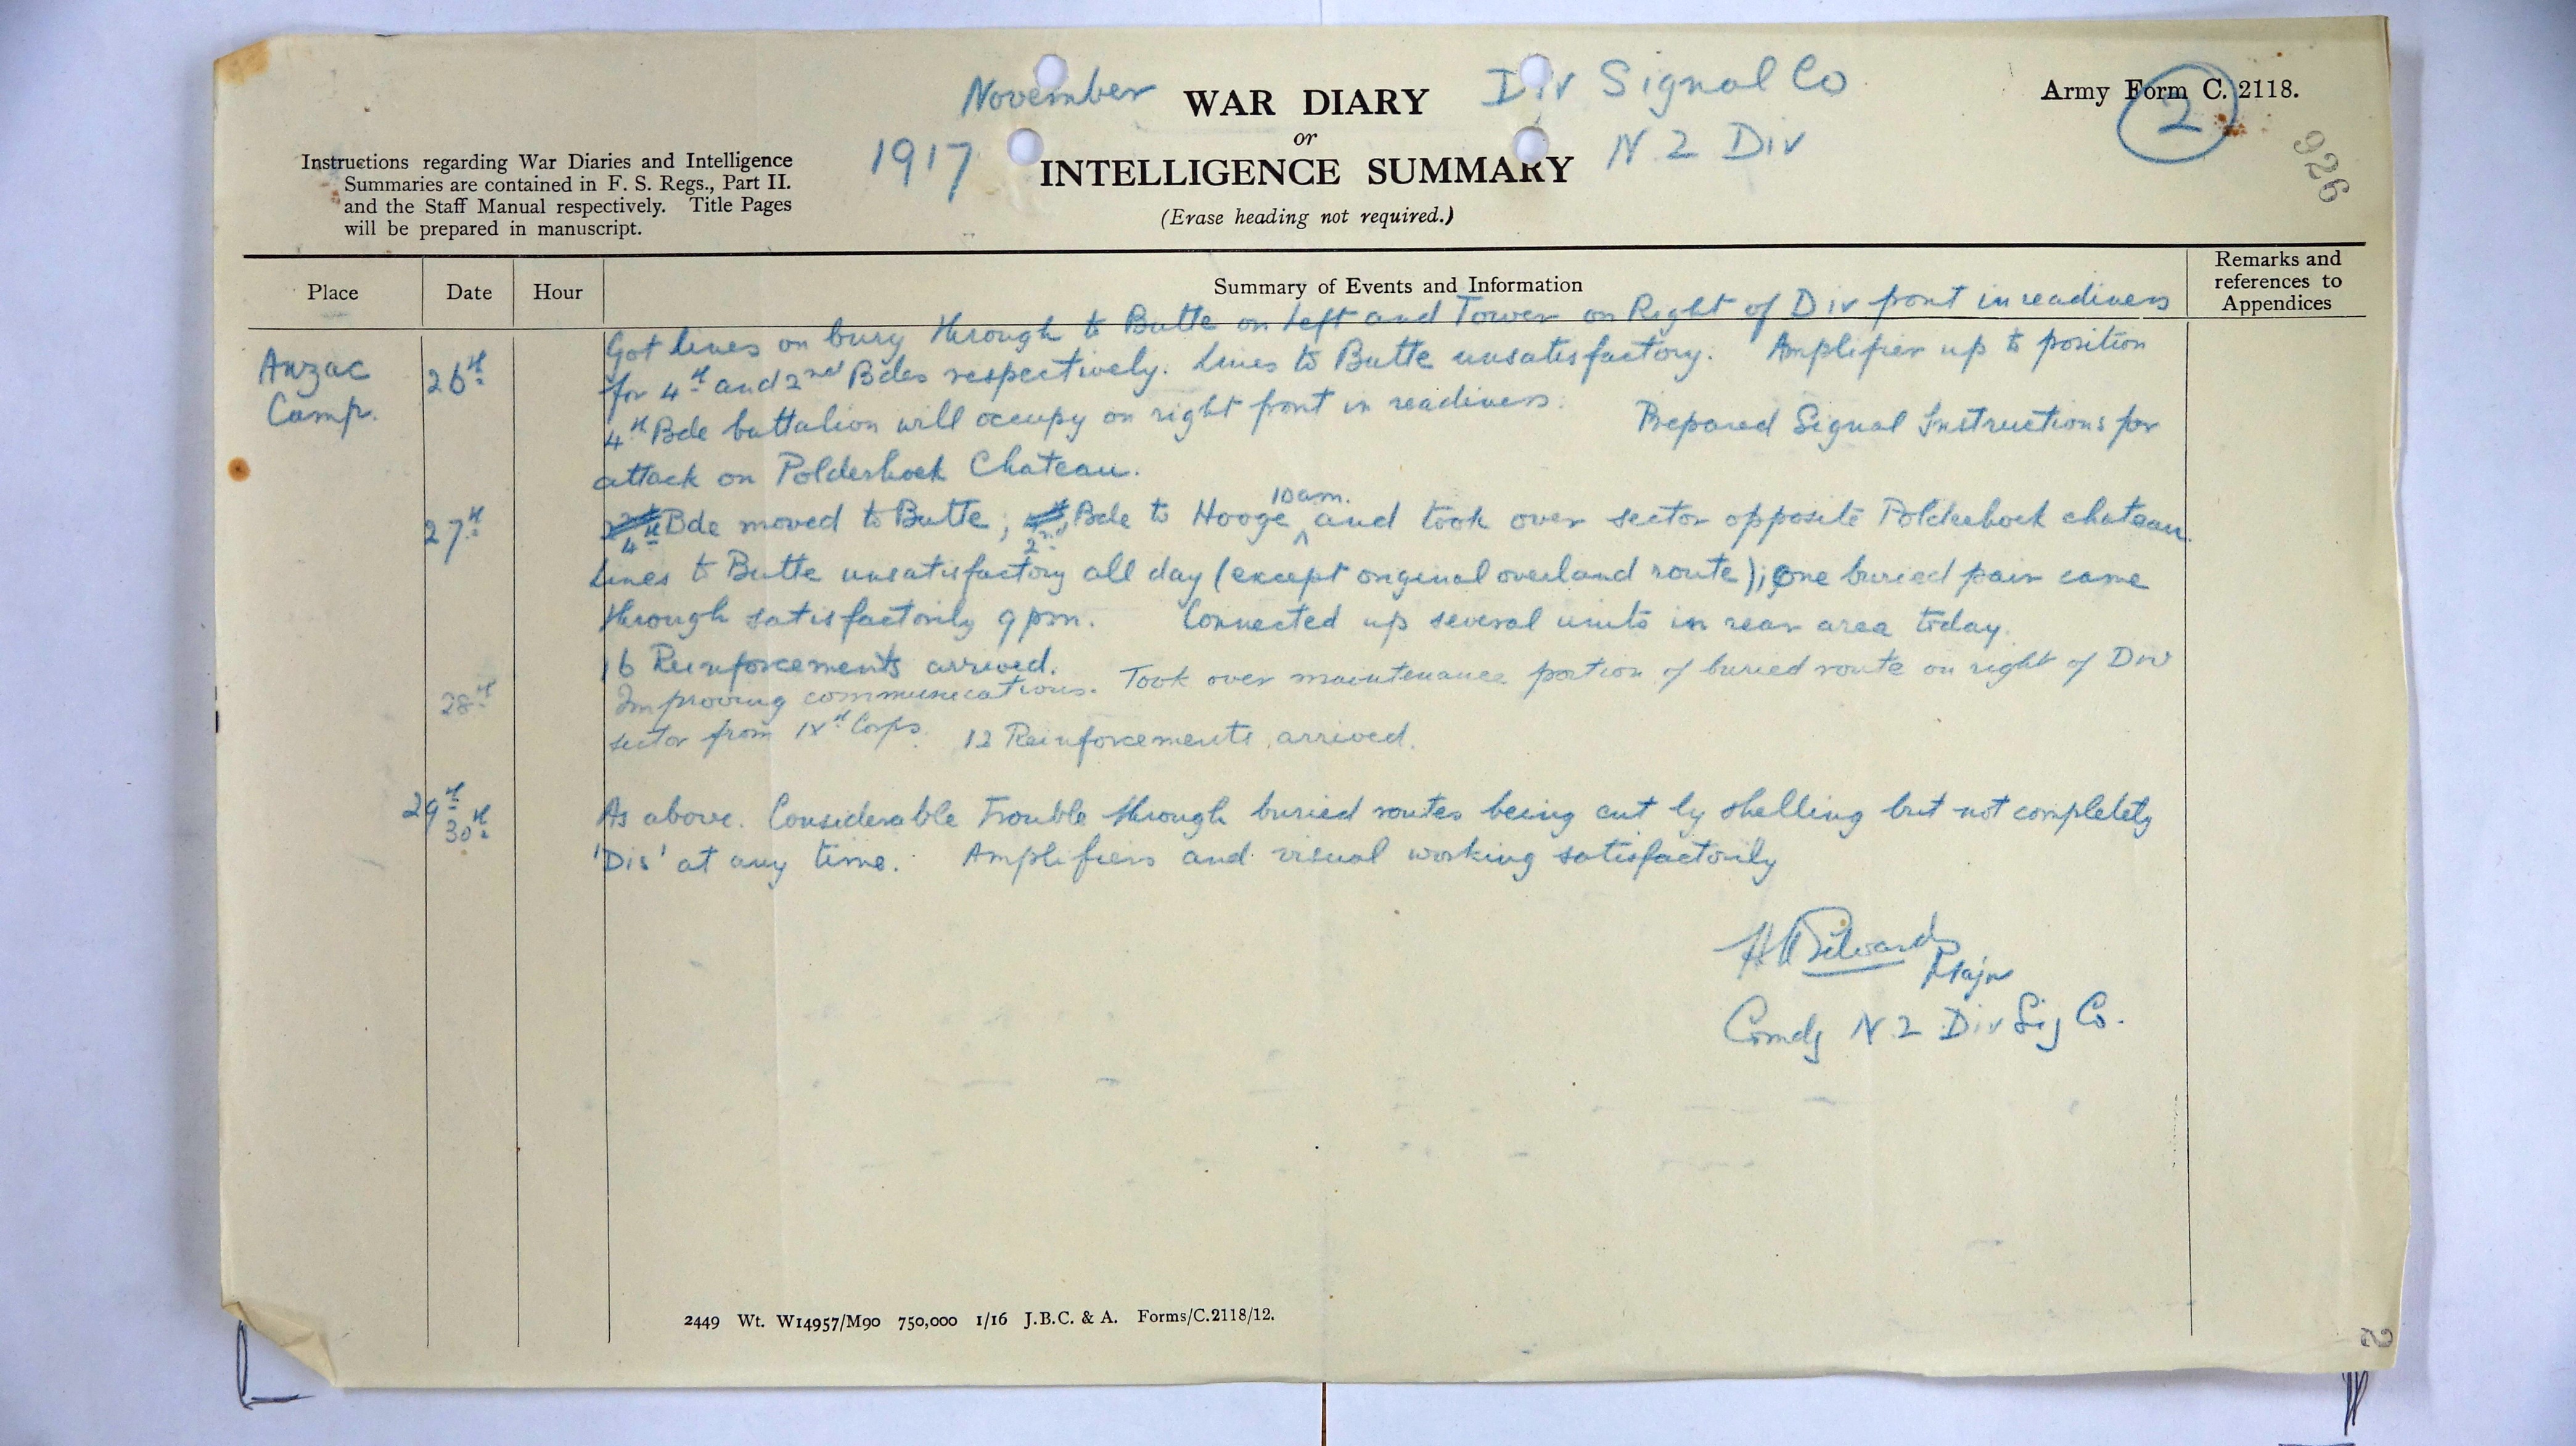 November
1917
WAR DIARY
or
INTELLIGENCE SUMMARY
(Erase heading not required.)
Div Signal Co
N Z Div
Army Form C. 2118.
2
926
Instructions regarding War Diaries and Intelligence
Summaries are contained in F. S. Regs., Part II.
and the Staff Manual respectively. Title Pages
will be prepared in manuscript.
Place Date Hour Summary of Events and Information Remarks and references to Appendices
Anzac Camp. 26th Got lines on bury through to Butte on left and Tower on Right of Div front in readiness
for 4th and 2nd Bdes respectively. Lines to Butte unsatisfactory. Amplifier up to position
4th Bde battalion will occupy on right front in readiness. Prepared Signal Instructions for
attack on Polderhoek Chateau.
27th 4th Bde moved to Butte; 2nd Bde to Hooge 10am. and took over sector opposite Polderhoek chateau.
Lines to Butte unsatisfactory all day (except original overland route); One buried pair came
through satisfactorily 9pm. Connected up several units in rear area today.
16 Reinforcements arrived.
28th Improving communications. Took over maintenance portion of buried route on right of Div
sector from IXth Corps. 12 Reinforcements arrived.
29th 30th As above. Considerable Trouble through buried routes being cut by shelling but not completely
'Dis' at any time. Amplifiers and visual working satisfactorily
Major
Comdg N Z Div Sig Co.
2449 Wt. W14957/M90 750,000 1/16 J.B.C. & A. Forms/C.2118/12.